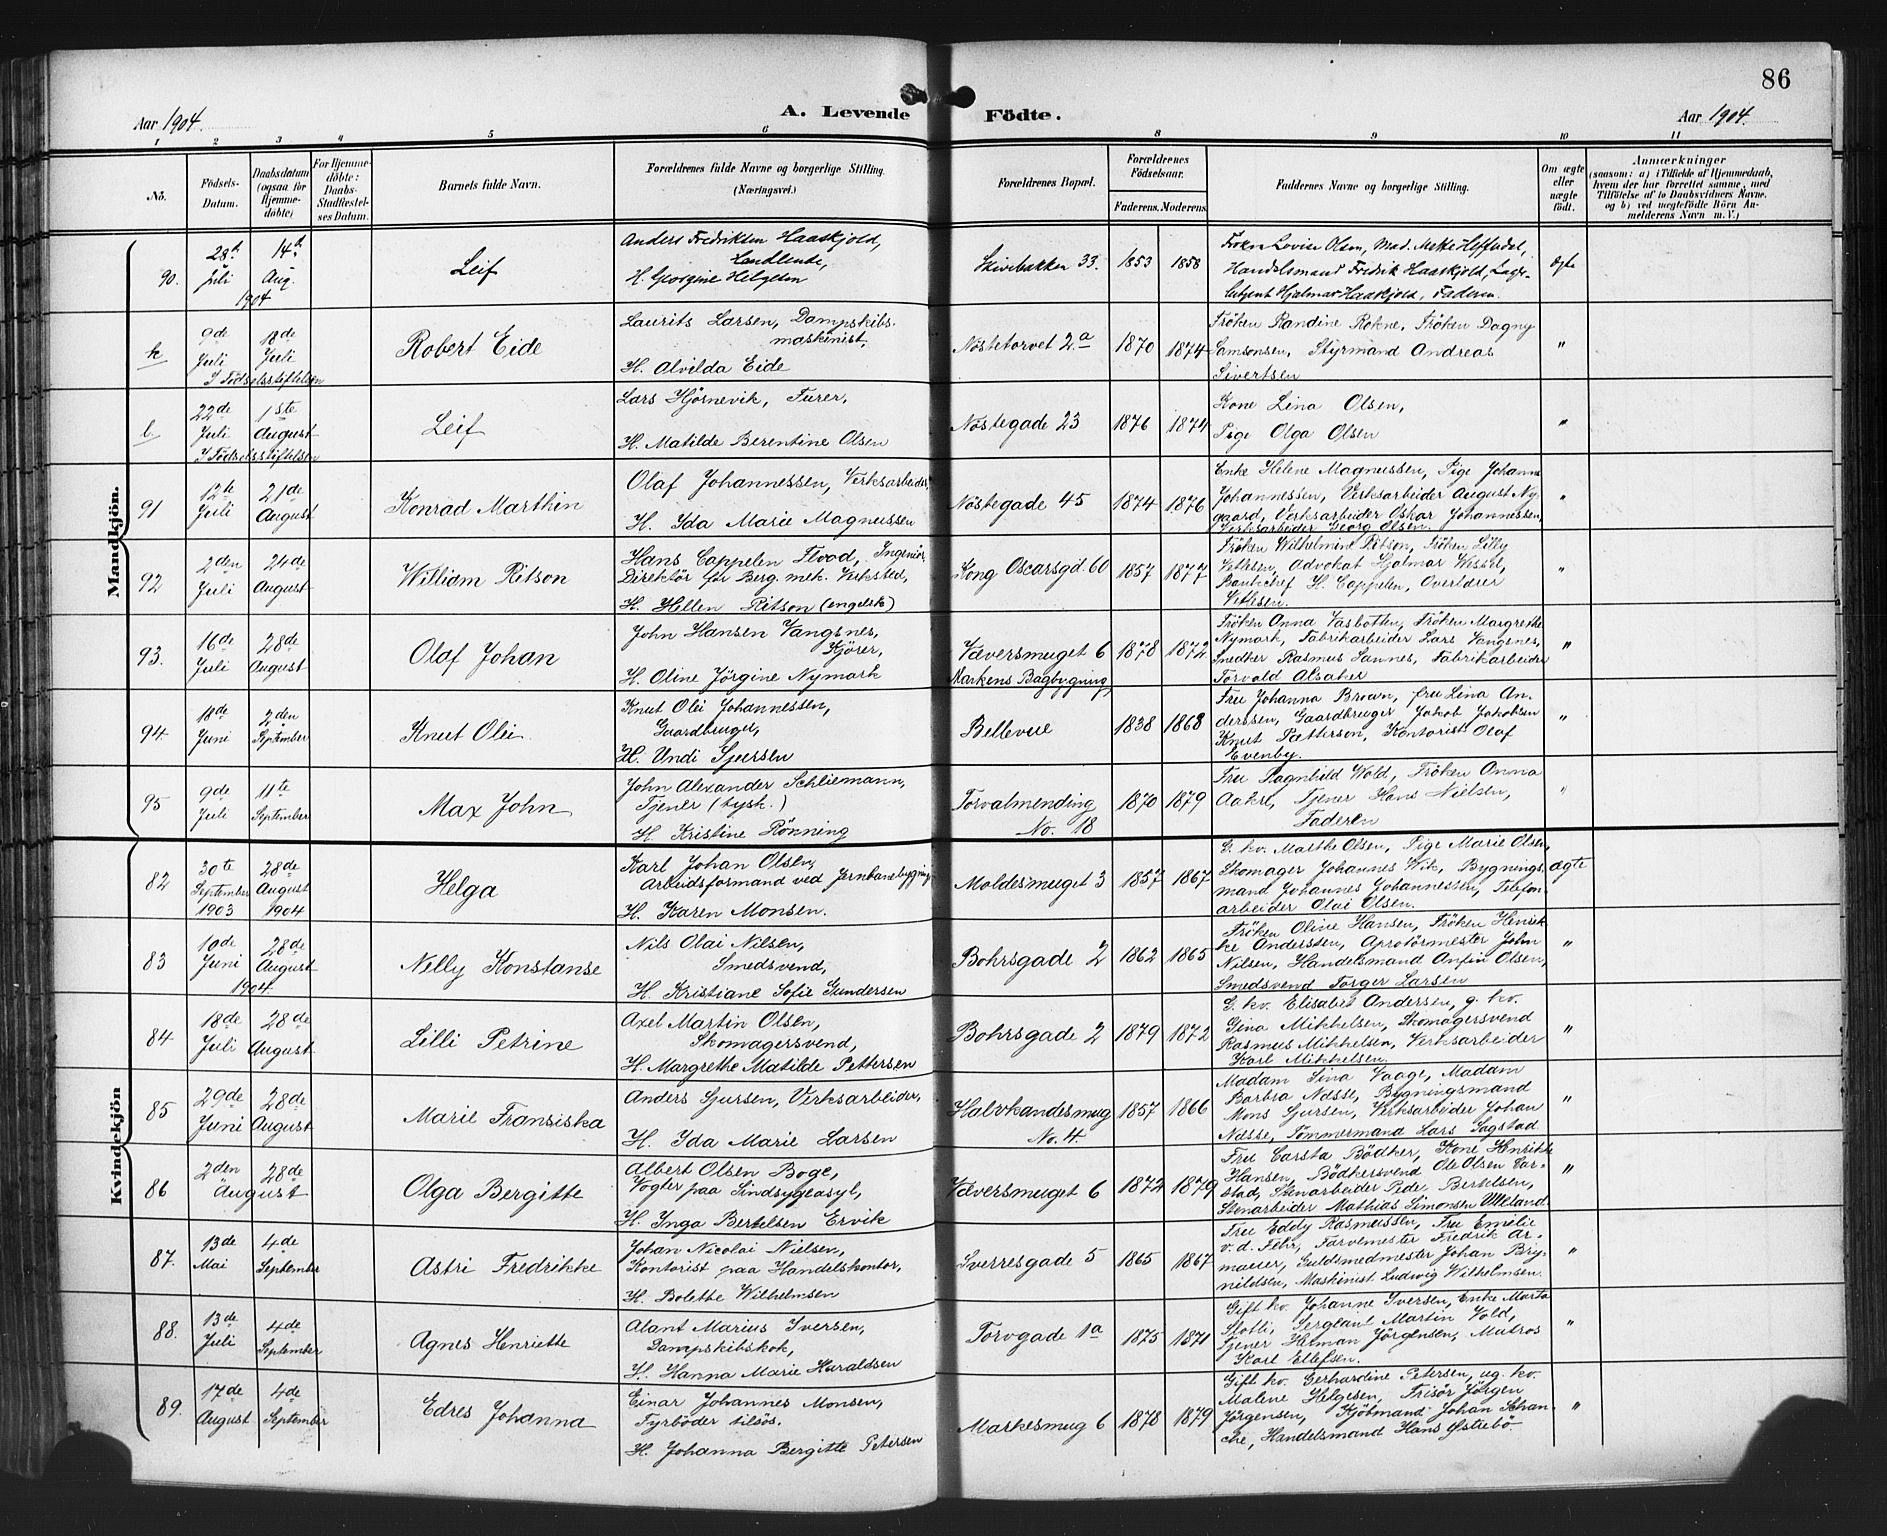 86
Aar 1904.
A. Levende
Födte.
Aar 1904.
1 2 3 4 5 6 8 9 10 11
No.
Födsels-
Datum.
Daabsdatum
(ogsaa for
Hjemme-
döbte)
For Hjemme-
döbte:
Daabs-
Stadfæstel-
ses Datum.
Barnets fulde Navn.
Forældrenes fulde Navne og borgerlige Stilling.
(Næringsvei.)
Forældrenes Bopæl.
Forældrenes
Födselsaar.
Faderens. Moderens.
Faddernes Navne og borgerlige Stilling.
Om ægte
eller
uægte
födt.
Anmærkninger
(saasom: a) i Tilfælde af Hjemmedaab,
hvem der har forrettet samme, med
Tilföielse af to Daabsvidners Navne,
og b) ved uægtefödte Börn An-
melderens Navn m. V.)
Mandkjön.
90.
28de
Juli
1904
14de
Aug.
Leif
Anders Fredriksen Haaskjold,
Handlende,
H. Georgine Helgesen
Skivebakken 33.
1853 1858
Frøken Lovise Olsen, Mad. Mette
Handelsmand Fredrik Haaskjold, Lager-
betjent Hjalmar Haaskjold, Faderen.
Ægte
k
9de
Juli
18de
Juli
I Födselsstiftelsen
Robert Eide
Laurits Larsen, Dampskibs-
maskinist,
H. Alvilda Eide
Nöstetorvet 2a
1870 1874
Fröken Randine Rokne, Fröken Dagny
Samsonsen, Styrmand Andreas
Sivertsen
"
l.
22de
Juli
1ste
August
I Födselsstiftelsen
Leif
Lars Hjörnevik, Furer,
H. Matilde Berentine Olsen
Nöstegade 23
1876 1874
Kone Lina Olsen,
Pige Olga Olsen
"
91
12te
Juli
21de
August
Konrad Marthin
Olaf Johannessen, Verksarbeider,
H. Ida Marie Magnussen
Nöstegade 45
1874 1876
Enke Helene Magnussen, Pige Johanne
Johannessen, Verksarbeider August Ny-
gaard, Verksarbeider Oskar Johannessen,
Verksarbeider Georg Olsen.
"
92
2den
Juli
24de
August
William Ritson
Hans Cappelen Flood, Ingeniör,
Direktör for Berg. mek. Verksted,
H. Hellen Ritson (engelsk)
Kong Oscarsgd. 60
1857 1877
Fröken Wilhelmine Ritson, Fröken Lilly
Vetlesen, Advokat Hjalmar Wessel,
Bankchef H. Cappelen, Overlærer
Vetlesen.
"
93.
16de
Juli
28de
August
Olaf Johan
John Hansen Vangsnes,
Kjörer,
H. Oline Jörgine Nymark
Væversmuget 6
Markens Bagbygning
1878 1872
Fröken Anna Vasbotten, Fröken Margrethe
Nymark, Fabrikarbeider Lars Vangsnes,
Snedker Rasmus Sannes, Fabrikarbeider
Torvald Alsaker
"
94.
18de
Juni
2den
September
Knut Olei
Knut Olei Johannessen,
Gaardbruger,
H. Undi Sjursen
Bellevue
1838 1868
Fru Johanna Brean, fru Lina An-
derssen, Gaardbruger Jakob Jakobsen
Knut Pettersen, Kontorist Olaf
Evenby.
"
95
9de
Juli
11te
September
Max John
John Alexander Schliemann,
Tjener (tysk.)
H. Kristine Rönning
Torvalmending
No. 18
1870 1879
Fru Ragnhild Wold, Fröken Anna
Tjener Hans Nielsen,
Faderen
"
Kvindekjön
82
30te
September
1903
28de
August
1904
Helga
Karl Johan Olsen,
Arbeidsformand ved Jernbanebygning
H. Karen Monsen.
Moldesmuget 3
1857 1867
G. kv. Marthe Olsen, Pige Marie Olsen,
Skomager Johannes Wik, Bygnings-
mand Johannes Johannessen, Telefon-
arbeider Olai Olsen.
ægte
83
10de
Juni
1904.
28de
August
Nelly Konstanse
Nils Olai Nilsen,
Smedsvend,
H. Kristiane Sofie Gundersen
Bohrsgade 2
1862 1865
Fröken Oline Hansen, Fröken Henrik-
ke Anderssen, Apretörmester John
Nilsen, Handelsmand Anfin Olsen,
Smedsvend Torger Larsen
"
84
18de
Juli
28de
August
Lilli Petrine
Axel Martin Olsen,
Skomagersvend,
H. Margrethe Matilde Pettersen
Bohrsgade 2
1879 1872
G. kv. Elisabet Andersen, g. kv.
Gina Mikkelsen, Skomagersvend
Rasmus Mikkelsen, Verksarbeider
Karl Mikkelsen.
"
85
29de
Juni
28de
August
Marie Fransiska
Anders Sjursen, Verksarbeider,
H. Ida Marie Larsen
Halvkandesmug
No. 4
1857 1866
Madam Sina Vaage, Madam
Barbra Næsse, Bygningsmand
Mons Sjursen, Verksarbeider Johan
Næsse, Tömmermand Lars Sagstad
"
86
2den
28de
August
Olga Bergitte
Albert Olsen Boge,
Vogter paa Sindsygeasyl,
H. Inga Bertelsen Ervik
Væversmuget 6
1872 1879
Fru Carsta Bödker, Kone Henrikke
Hansen, Bödkersvend Ole Olsen Car-
stad, Stenarbeider Peder Bertelsen,
Stenarbeider Mathias Simonsen Ulveland
"
87.
13de
Mai
4de
September
Astri Fredrikke
Johan Nicolai Nielsen,
Kontorist paa Handelskontor,
H. Bolette Wilhelmsen
Sverresgade 5
1865 1867
Fru Eddy Rasmussen, Fru Emilie
v. d. Fehr, Farvemester Fredrik Ar-
mauer, Guldsmedmester Johan Bry-
nildsen, Maskinist Ludwig Wilhelmsen.
"
88.
13de
Juli
4de
September
Agnes Henriette
Alant Marius Iversen,
Dampskibskok,
H. Hanna Marie Haraldsen
Torvgade 1a
1875 1871
Gift kv. Johanne Iversen, Enke Marta
Slotli, Sergeant Martin Vold,
Tjener Herman Jörgensen, Matros
Karl Ellefsen.
"
89.
17de
August
4de
September
Edres Johanna
Einar Johannes Monsen,
Fyrböder tilsös.
H. Johanna Bergitte Petersen
Markesmug 6
1878 1879
Gift kv. Gerhardine Petersen, ug. kv.
Malene Helgesen, Frisör Jörgen
Jörgensen, Kjöbmand Johan Schan-
che, Handelsmand Hans Østrebö.
"